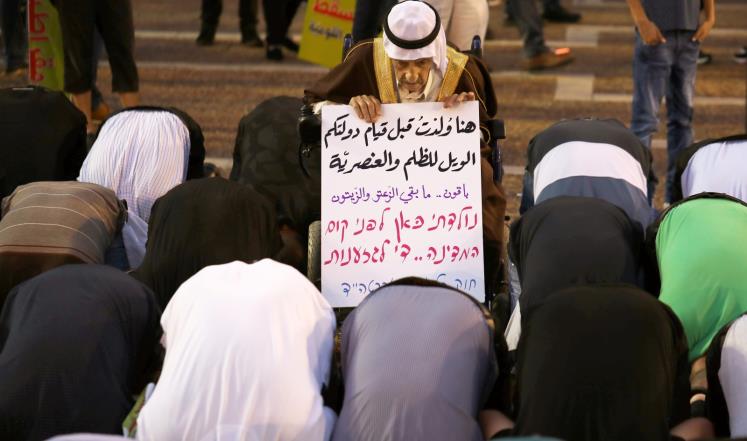 هنا وُلدتُ قبل قيام دولتكم
الويل للظلم والعنصريّة
باقون.. ما بقي الزعتر والزيتون
נולדתי כאן לפני קום
המדינה.. די לגזענות
חוק